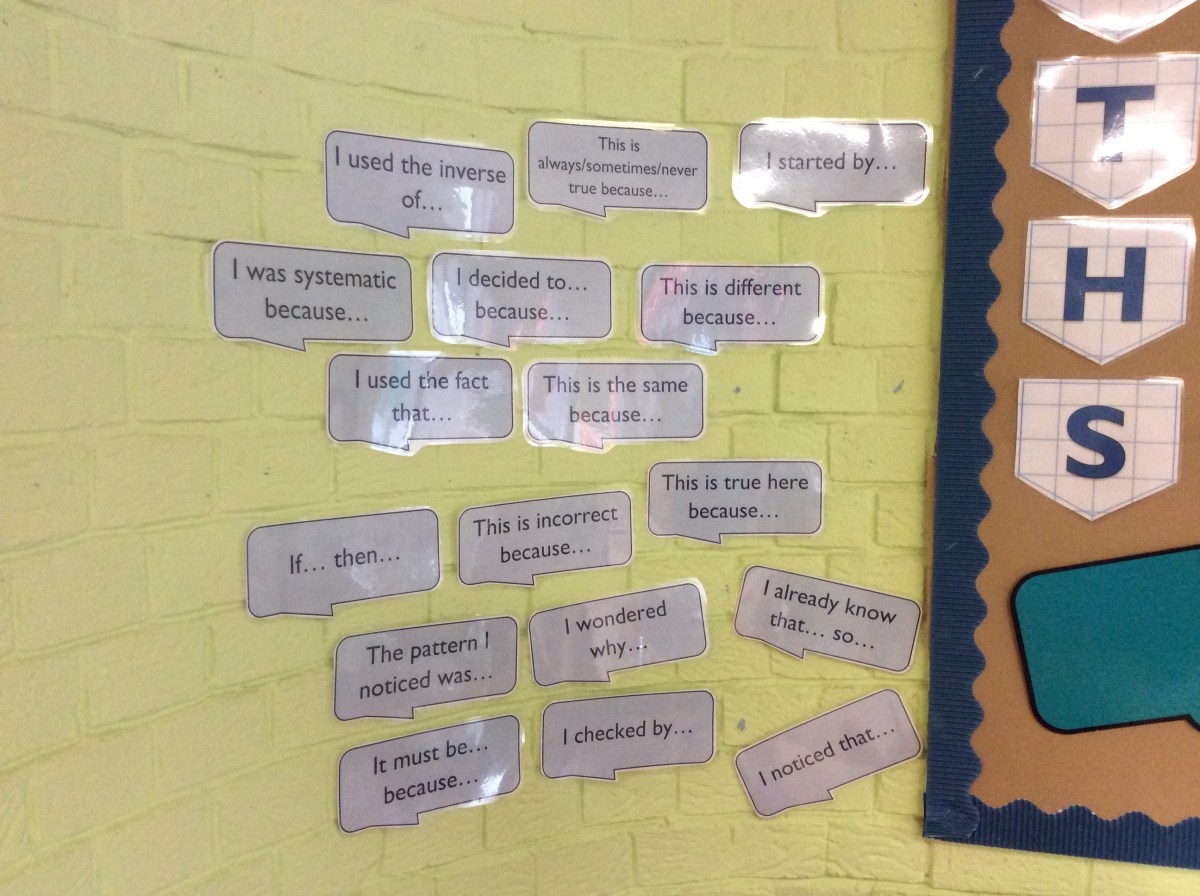 I used the inverse
of…
This is
always/sometimes/never
true because…
I started by…
I was systematic
because…
I decided to…
because…
This is different
because…
I used the fact
that…
This is the same
because…
This is true here
because…
If… then…
This is incorrect
because…
I already know
that… so…
The pattern I
noticed was…
I wondered
why…
It must be…
because…
I checked by…
I noticed that…
T
H
S